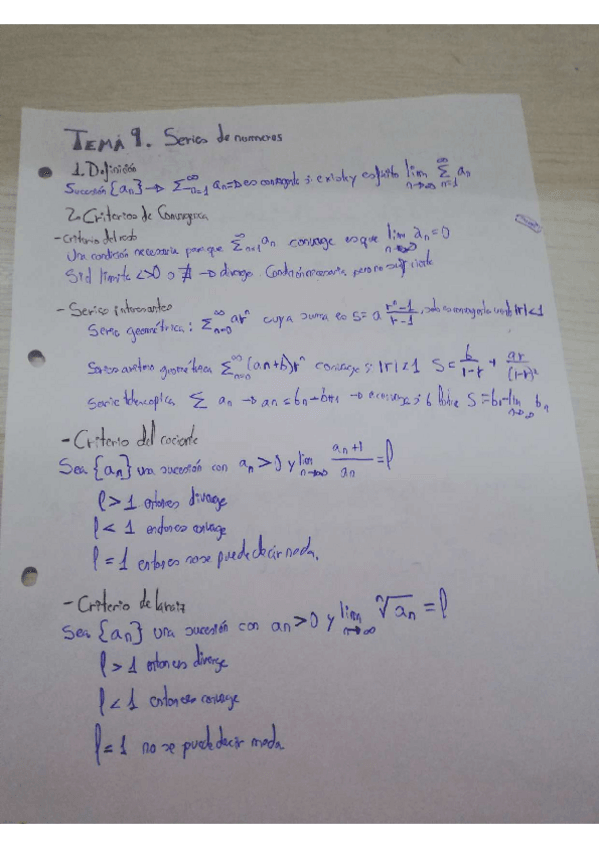 TEMA 9. Series de numeros
1. Definición
Sucesión {an} → ∑_{n=1}^∞ an => es convergente si existe y es finito lim_{n→∞} ∑_{n=1}^∞ an
2. Criterios de Convergencia
- Criterio del resto
Una condición necesaria para que ∑_{n=1}^∞ an converge es que lim_{n→∞} an = 0
Si el límite <>0 o ∄ → diverge. Condición necesaria pero no suficiente
- Series interesantes
Serie geométrica: ∑_{n=0}^∞ ar^n cuya suma es S = a (r^n - 1)/(r - 1), solo es convergente cuando |r|<1
Series aritmo geométrica ∑_{n=0}^∞ (an+b)r^n converge si |r|<1 S = b/(1-r) + ar/(1-r)²
Serie telescopica ∑ an → an = bn - bn+1 → converge si b S = b1 - lim_{n→∞} bn
- Criterio del cociente
Sea {an} una sucesión con an>0 y lim_{n→∞} an+1/an = l
l > 1 entonces diverge
l < 1 entonces converge
l = 1 entonces no se puede decir nada.
- Criterio de la raiz
Sea {an} una sucesión con an>0 y lim_{n→∞} ⁿ√an = l
l > 1 entonces diverge
l < 1 entonces converge
l = 1 no se puede decir nada